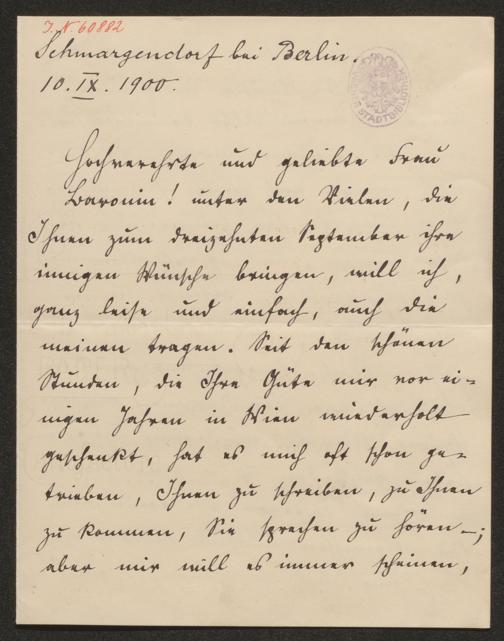 J. N. 60882
Schmargendorf bei Berlin.
10. IX. 1900.
Hochverehrte und geliebte Frau
Baronin! unter den Vielen, die
Ihnen zum dreizehnten September ihre
innigen Wünsche bringen, will ich,
ganz leise und einfach, auch die
meinen tragen. Seit den schönen
Stunden, die Ihre Güte mir vor ei-
nigen Jahren in Wien wiederholt
geschenkt, hat es mich oft schon ge-
trieben, Ihnen zu schreiben, zu Ihnen
zu kommen, Sie sprechen zu hören –;
aber mir will es immer scheinen,